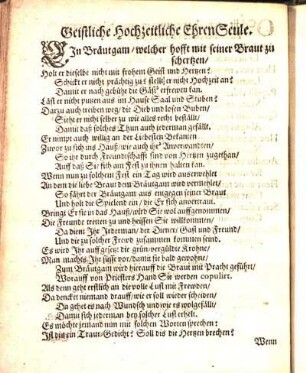 Geistliche Hochzeitliche Ehren Seule.
EIn Bräutgam/ welcher hofft mit seiner Braut zu
schertzen/
Holt er dieselbe nicht mit frohem Geist und Hertzen?
Schickt er nicht prächtig zu? stellt er nicht Hochzeit an?
Damit er nach gebühr die Gäst' erfrewen kan.
Läst er nicht putzen aus im Hause Saal und Stuben?
Darzu auch treiben weg die Dieb und losen Buben/
Sieht er nicht selber zu wie alles recht beställt/
Damit das solches Thun auch jederman gefällt.
Er nimpt auch willig an der Liebesten Bekanten
Zuvor zu sich ins Hauß/ wie auch ihr' Anverwandten/
So ihr durch Freundschaffts sind von Hertzen zugethan/
Auff daß Sie sich am Fest zu ihnen halten kan.
Wenn nun zu solchem Fest ein Tag wird auserwehlet
An dem die liebe Braut dem Bräutgam wird vermählet/
So fähret der Bräutgam aus entgegen seiner Braut
Und holt die Spielend ein/ die Er sich anvertraut.
Bringt Er sie in das Hauß/ wird Sie wol auffgenommen/
Die Freunde treten zu und heissen Sie willkommen/
Da dient Ihr Jederman/ der Diener/ Gäst und Freund/
Und die zu solcher Frewd zusammen kommen seind.
Es wird Ihr auffgesetzt die grün vergüldte Krohne/
Man machts Ihr süsse vor/ damit sie bald gewohne/
Zum Bräutgam wird hierauff die Braut mit Pracht geführt/
Worauff von Priesters Hand Sie werden copulirt.
Als denn geht erstlich an die volle Lust mit Frewden/
Da dencket niemand drauff/ wie er soll wieder scheiden/
Da gehet es nach Wundsch und wie es wolgefällt/
Damit sich jederman bey solcher Lust erhelt.
Es möchte jemand nun mit solchen Worten sprechen:
Ist diß ein Traur-Gedicht? Soll diß die Hertzen brechen?
Wenn